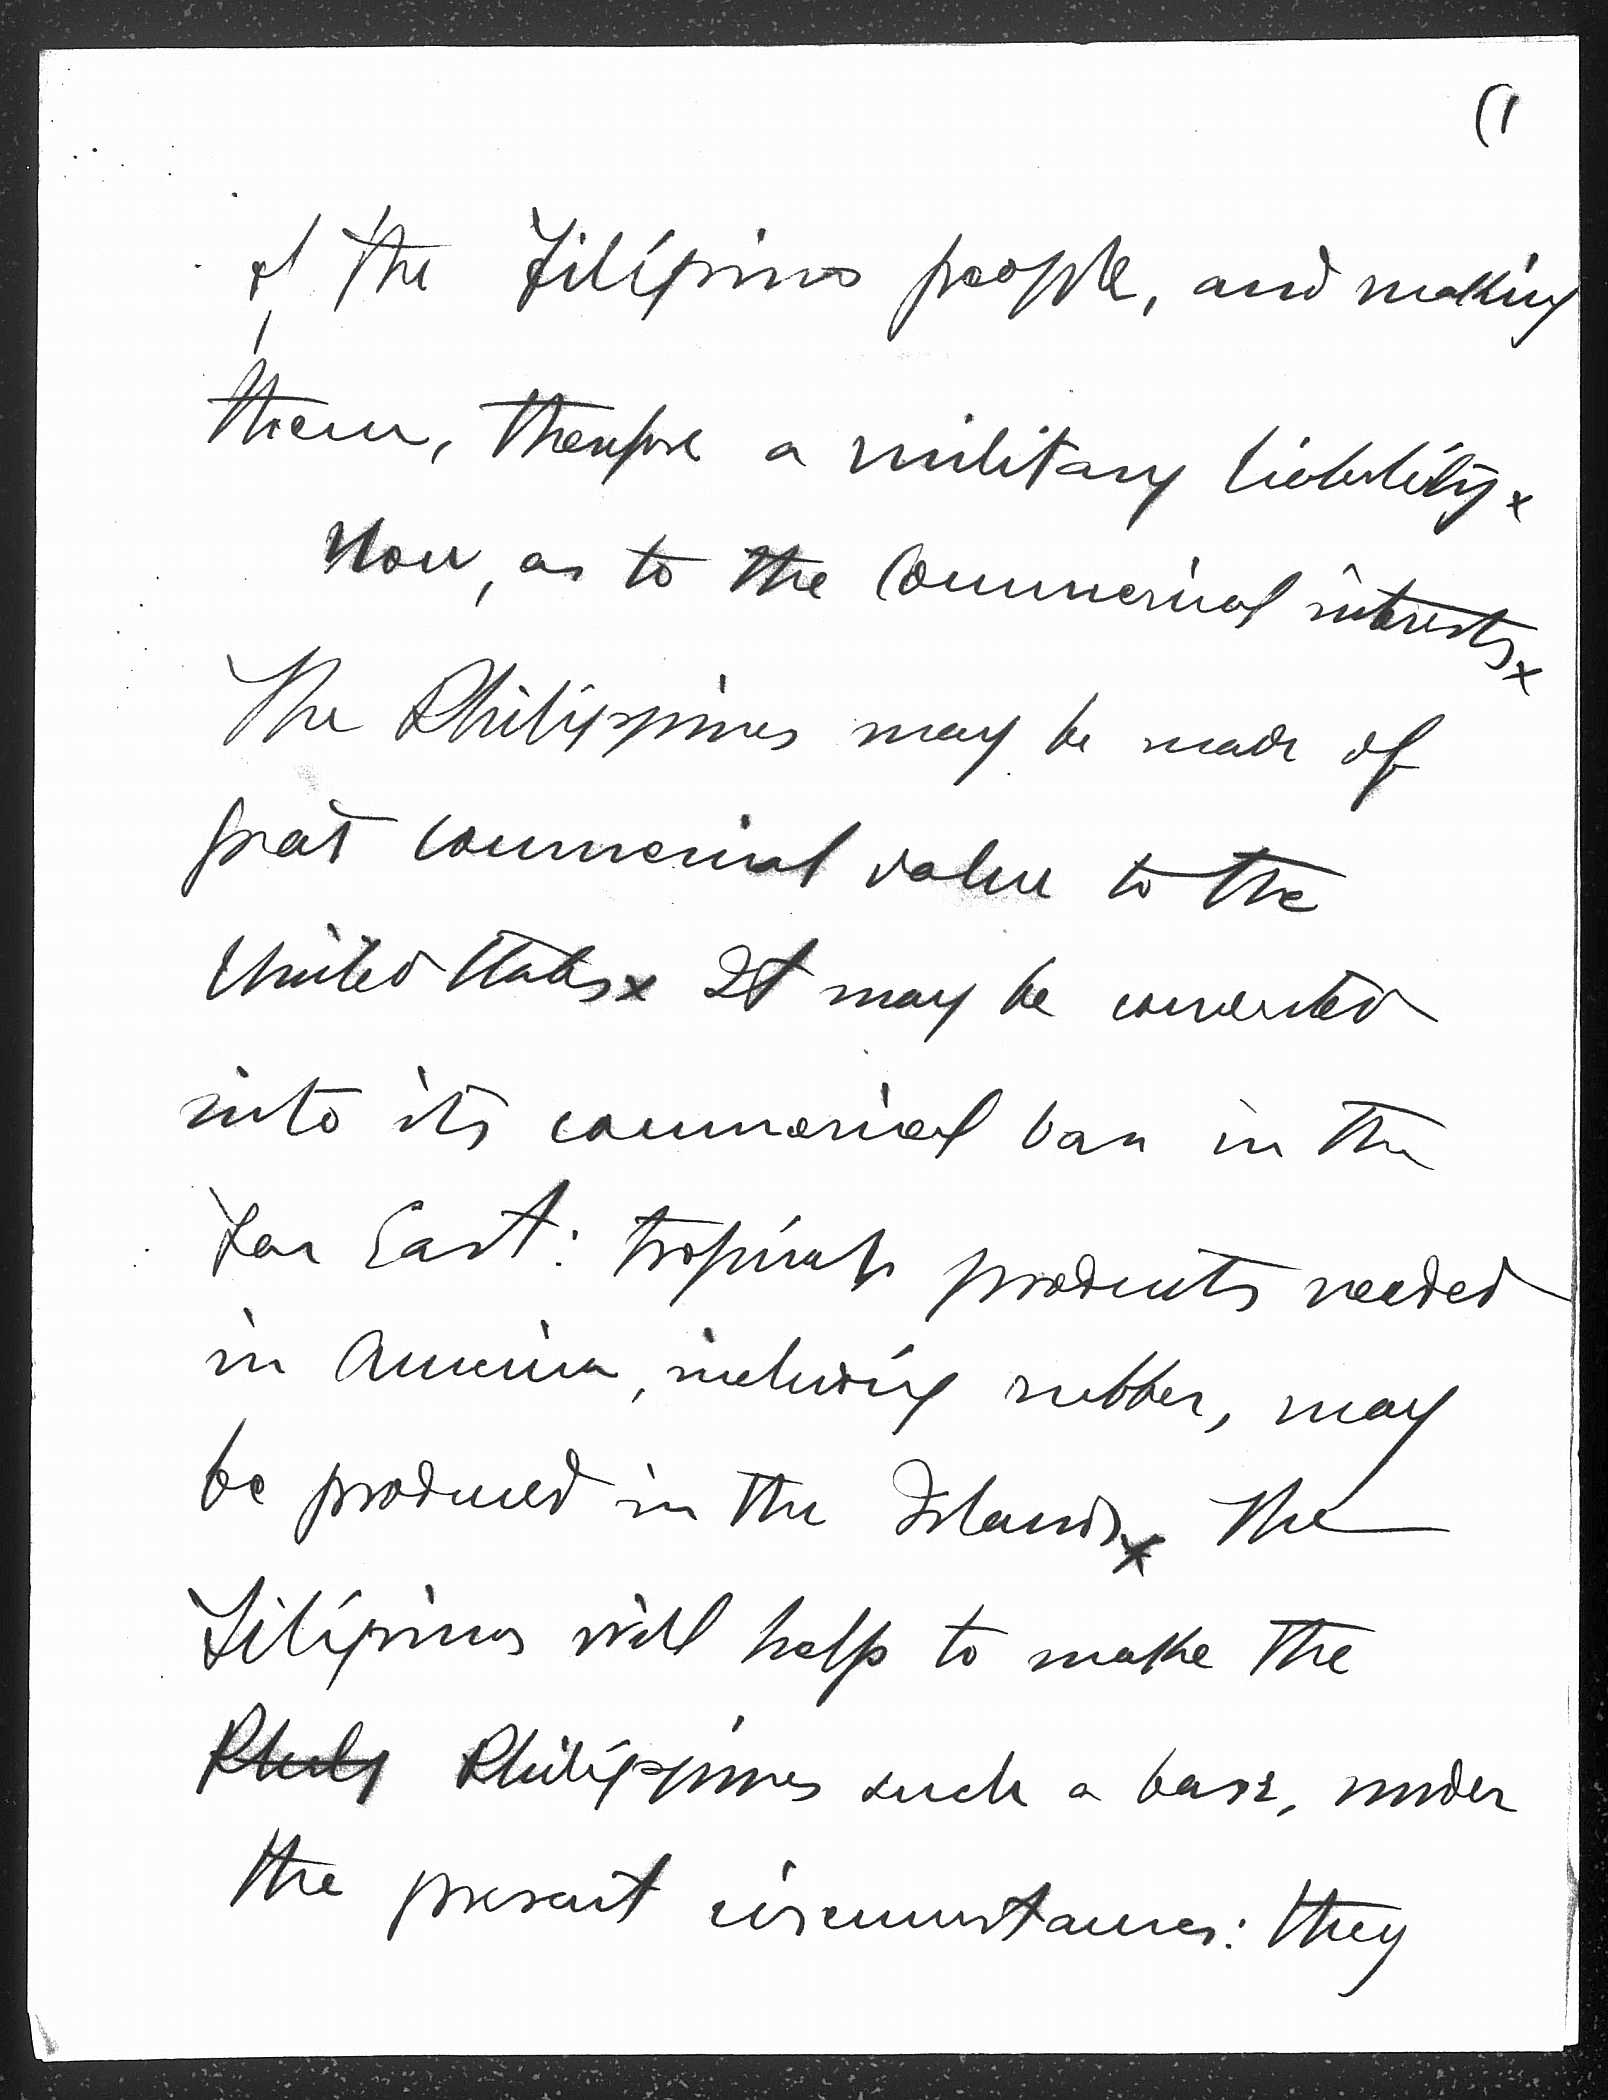 (1
of the Filipino people, and making
them, therefore a military liability x
Now, as to the Commercial interests x
The Philippines may be made of
great commercial value to the
United States x It may be converted
into its commercial base in the
Far East: tropical products needed
in America, including rubber, may
be produced in the Islands x The
Filipinos will help to make the
Phily Philippines such a base, under
the present circumstances: they